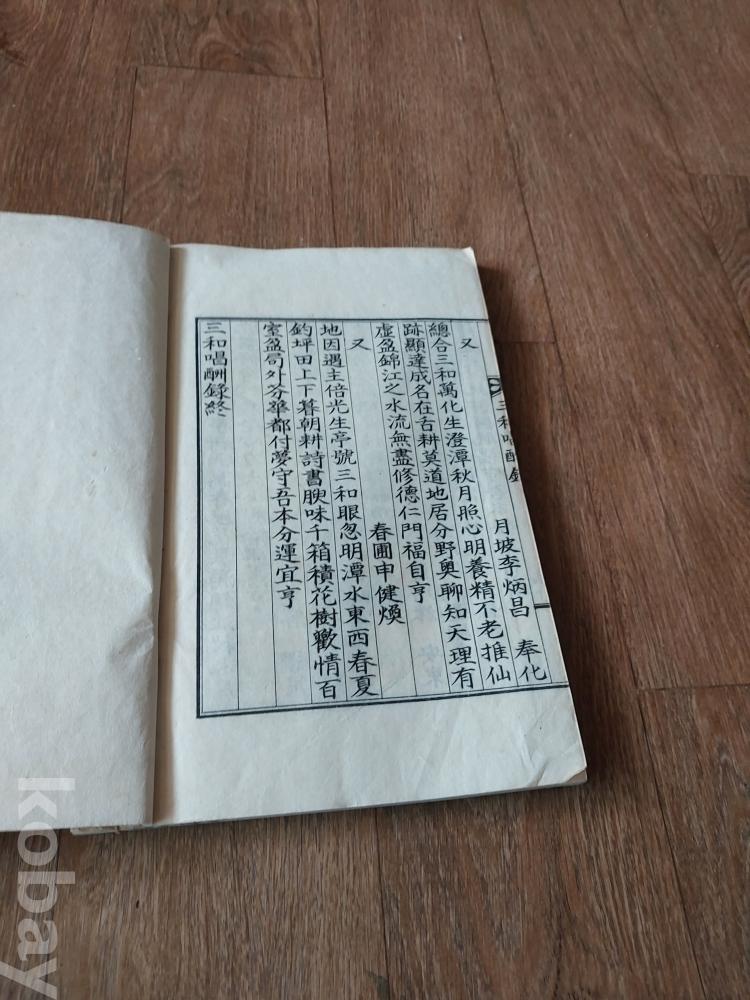 三和唱酬錄
又　月坡李炳昌　奉化
總合三和萬化生澄潭秋月照心明養精不老推仙
跡顯達成名在舌耕莫道地居分野奧聊知天理有
虛盈錦江之水流無盡修德仁門福自亨
又　春圃申健煥
地因遇主倍光生亭號三和眼忽明潭水東西春夏
釣坪田上下暮朝耕詩書腴味千箱積花樹歡情百
室盈局外芬華都付夢守吾本分運宜亨
三和唱酬錄終
kobay